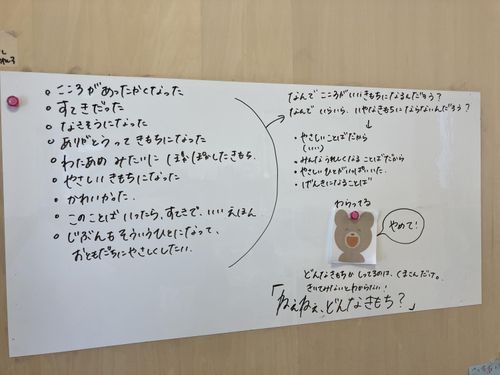 ○ こころがあったかくなった
○ すてきだった
○ なきそうになった
○ ありがとうって きもちになった
○ わたあめ みたいに ぽわぽわしたきもち.
○ やさしい きもちになった
○ かわいかった.
○ このことば いったら、すてきで、いい えほん.
○ じぶんも そういうひとに なって、
おともだちに やさしくしたい.
なんで こころが いいきもちに なるんだろう?
なんで いらいら、いやなきもちに ならないんだろう?
↓
・やさしいことばだから
(いい)
・みんなうれしくなる ことばだから
・やさしいひとが いっぱいいた.
・げんきになることば
わらってる
やめて!
どんなきもちか しってるのは、くまくんだけ。
きいてみないとわからない!
「ねぇねぇ、どんなきもち?」